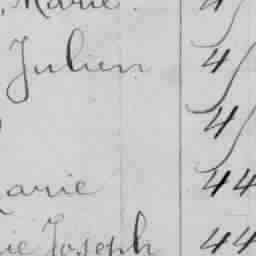 Marie 4
Julien 4
4
arie 44
ie Joseph 44